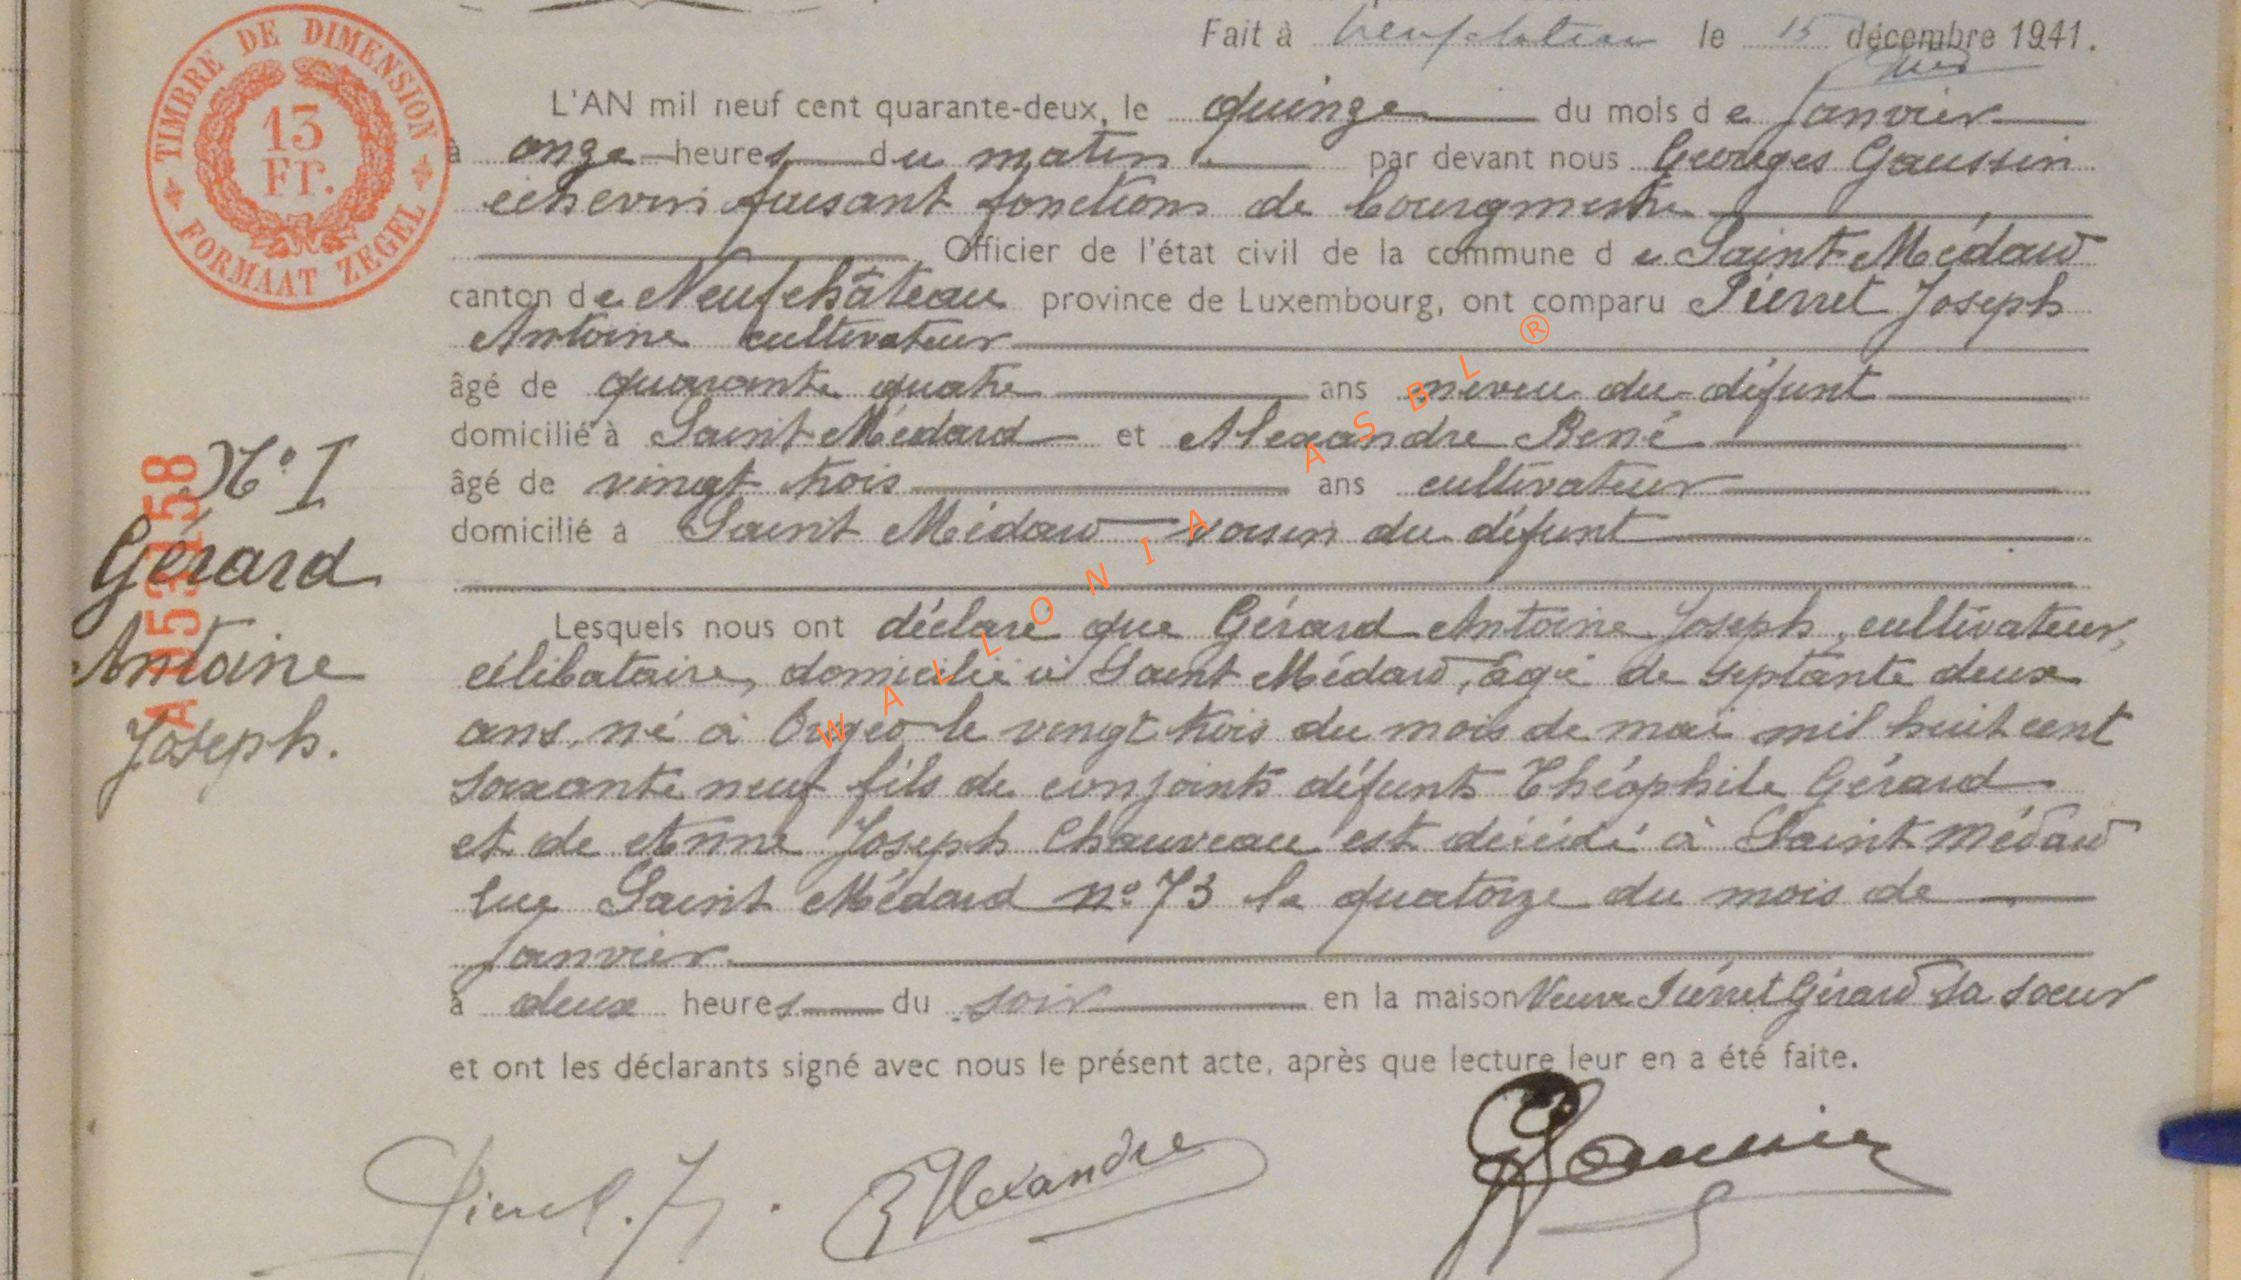 Fait à Neufchâteau le 15 décembre 1941.
TIMBRE DE DIMENSION
13
Fr.
FORMAAT ZEGEL
L'AN mil neuf cent quarante-deux, le quinze du mois de Janvier
à onze heures du matin par devant nous Georges Gaussin
échevin faisant fonctions de bourgmestre
Officier de l'état civil de la commune de Saint Médard
canton de Neufchâteau province de Luxembourg, ont comparu Pierret Joseph
Antoine cultivateur
âgé de quarante quatre ans neveu du défunt
domicilié à Saint Médard et Alexandre René
âgé de vingt trois ans cultivateur
domicilié à Saint Médard voisin du défunt
N° I
Gérard
Antoine
Joseph.
A 053158
Lesquels nous ont déclaré que Gérard Antoine Joseph, cultivateur,
célibataire, domicilié à Saint Médard, âgé de septante deux
ans, né à Orgeo le vingt trois du mois de mai mil huit cent
soixante neuf fils de conjoints défunts Théophile Gérard
et de Anne Joseph Chauveau est décédé à Saint Médard
rue Saint Médard n° 73 le quatorze du mois de
janvier.
à deux heures du soir en la maison Veuve Pierret Gérard sa soeur
et ont les déclarants signé avec nous le présent acte, après que lecture leur en a été faite.
Pierret. J. R Alexandre G Gaussin
WALLONIA ASBL ®